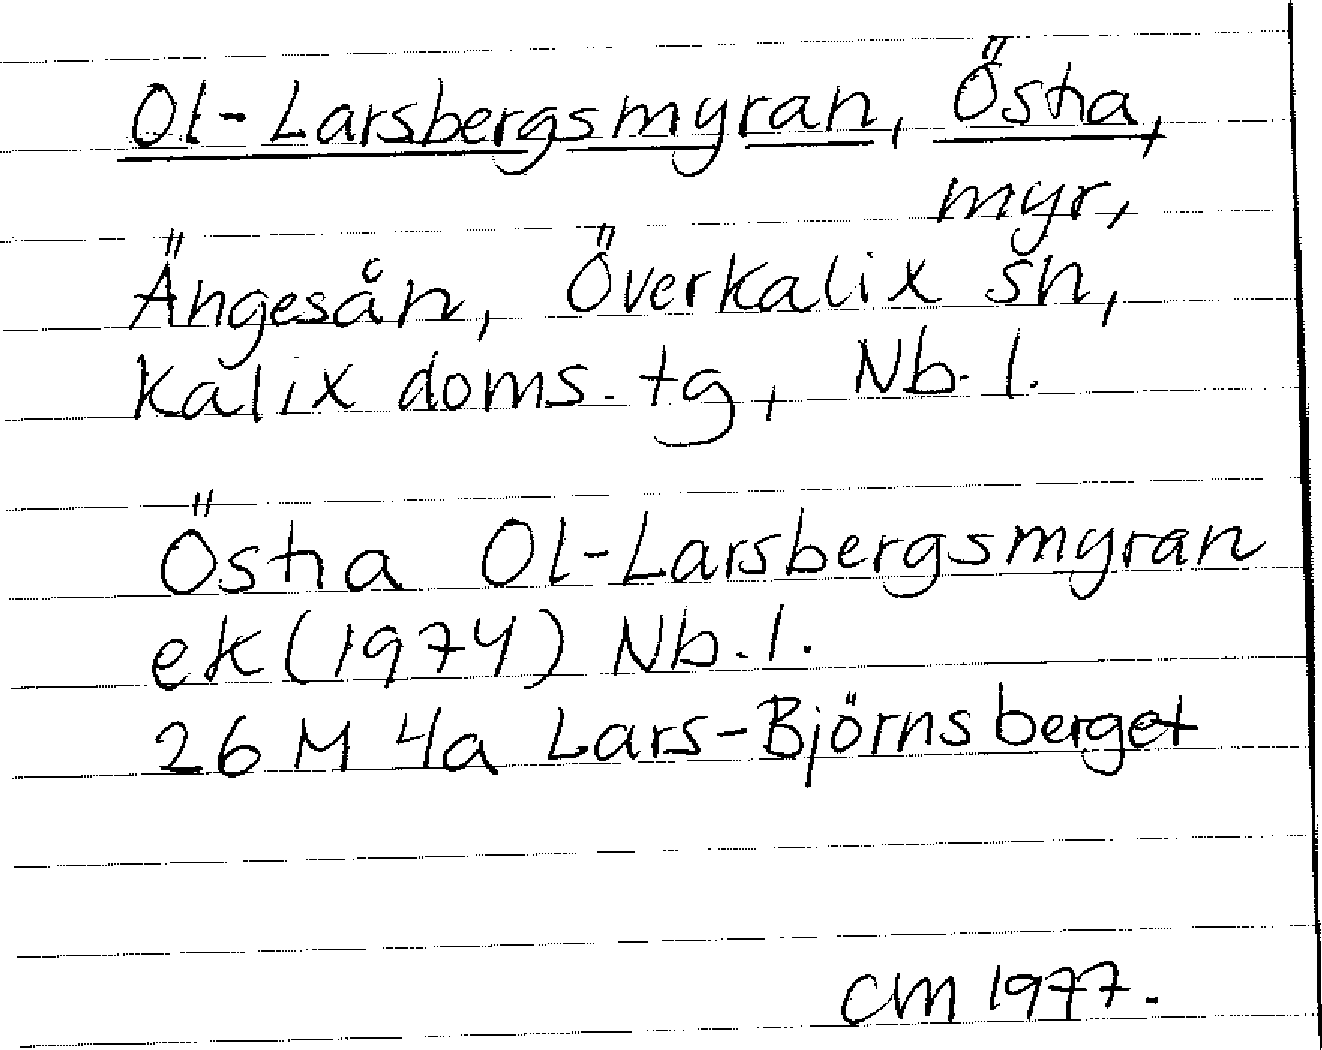 Ol-Larsbergsmyran, Östra,
myr,
Ängesån, Överkalix sn,
Kalix doms. tg, Nb. l.
Östra Ol-Larsbergsmyran
ek (1974) Nb. l.
26 M 4a Lars-Björnsberget
CM 1977.